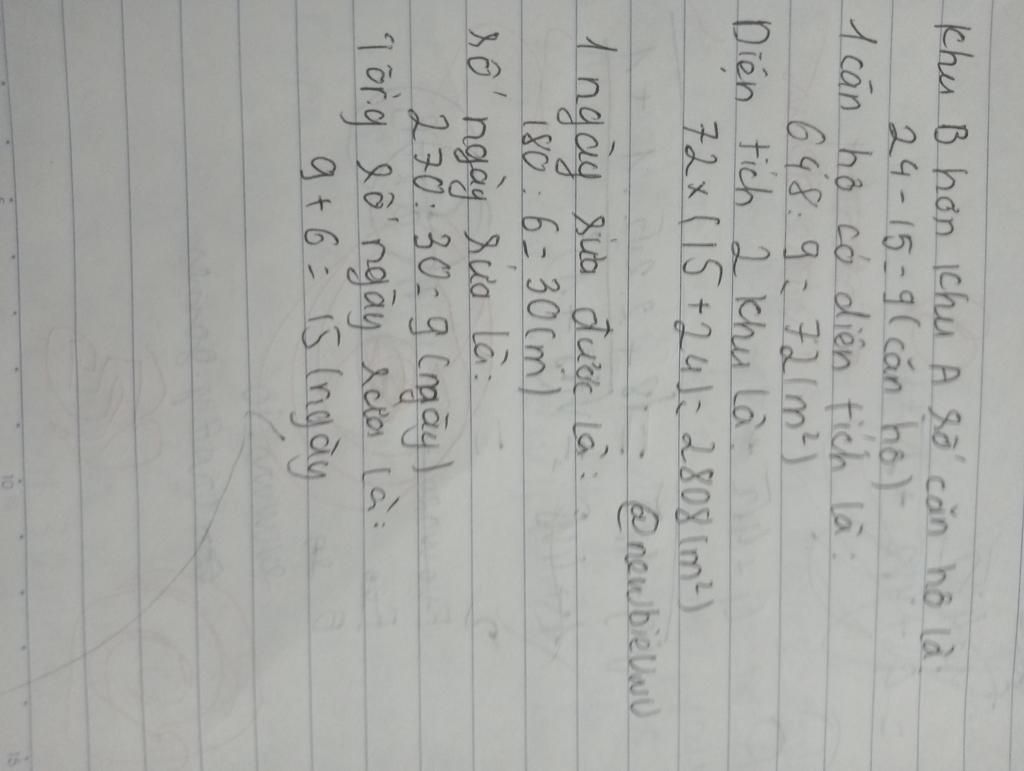 Khu B hơn khu A số căn hộ là:
24 - 15 = 9 (căn hộ)
1 căn hộ có diện tích là:
648 : 9 = 72 (m²)
Diện tích 2 khu là:
72 × (15 + 24) = 2808 (m²)
@newbieuwu
1 ngày sửa được là:
180 : 6 = 30 (m)
số ngày sửa là:
270 : 30 = 9 (ngày)
Tổng số ngày sửa là:
9 + 6 = 15 (ngày